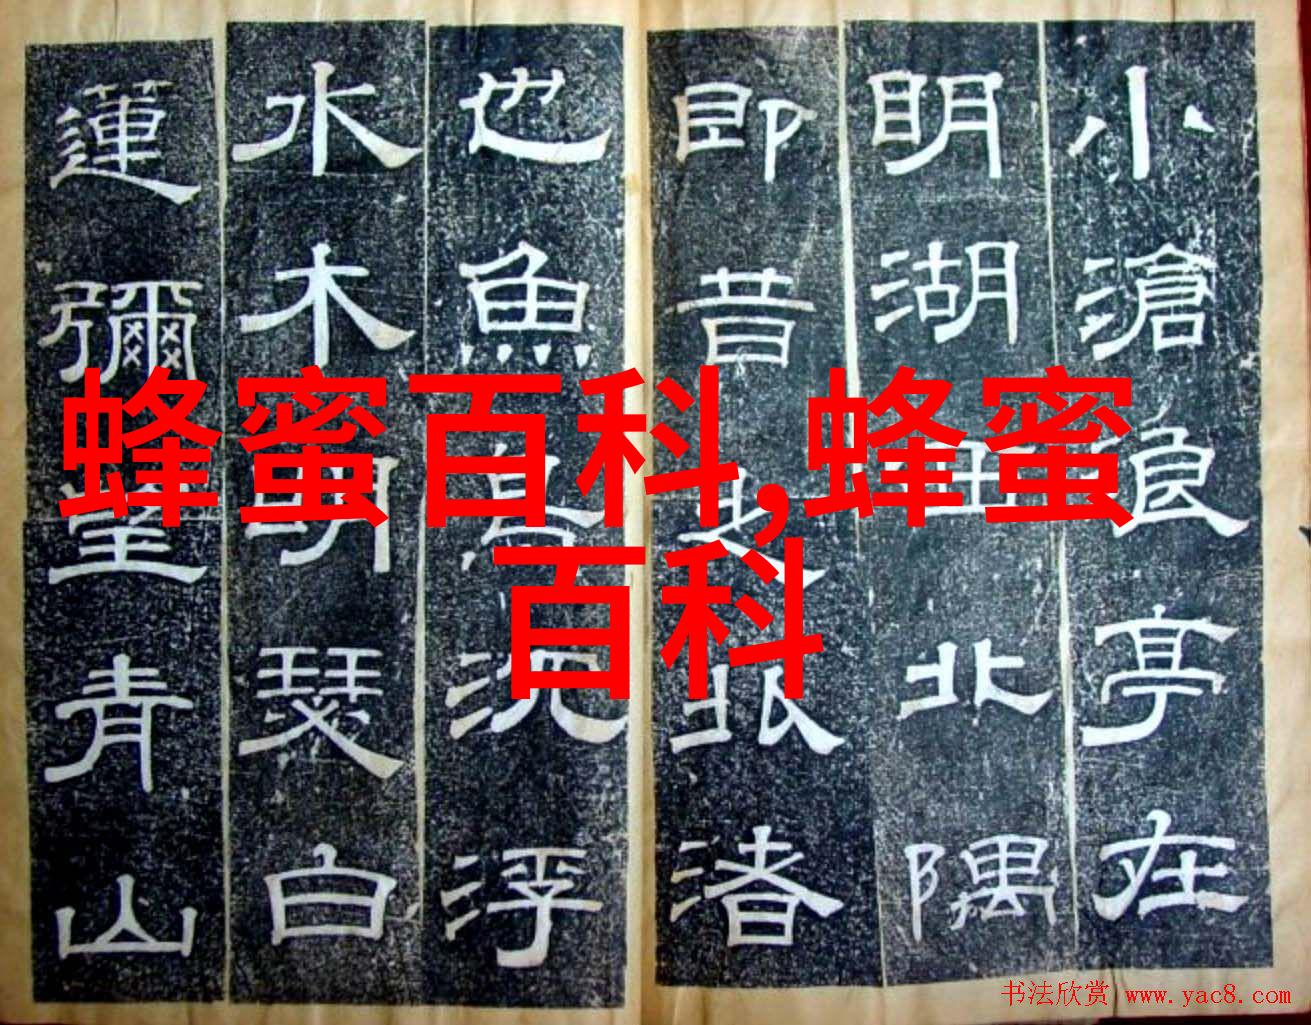 小滄浪亭在
明湖北隅
即昔之北渚
也魚鳥沉浮
水木明瑟白
蓮彌望青山
蜂蜜百科,蜂蜜
百科
书法欣赏 www.yac8.com